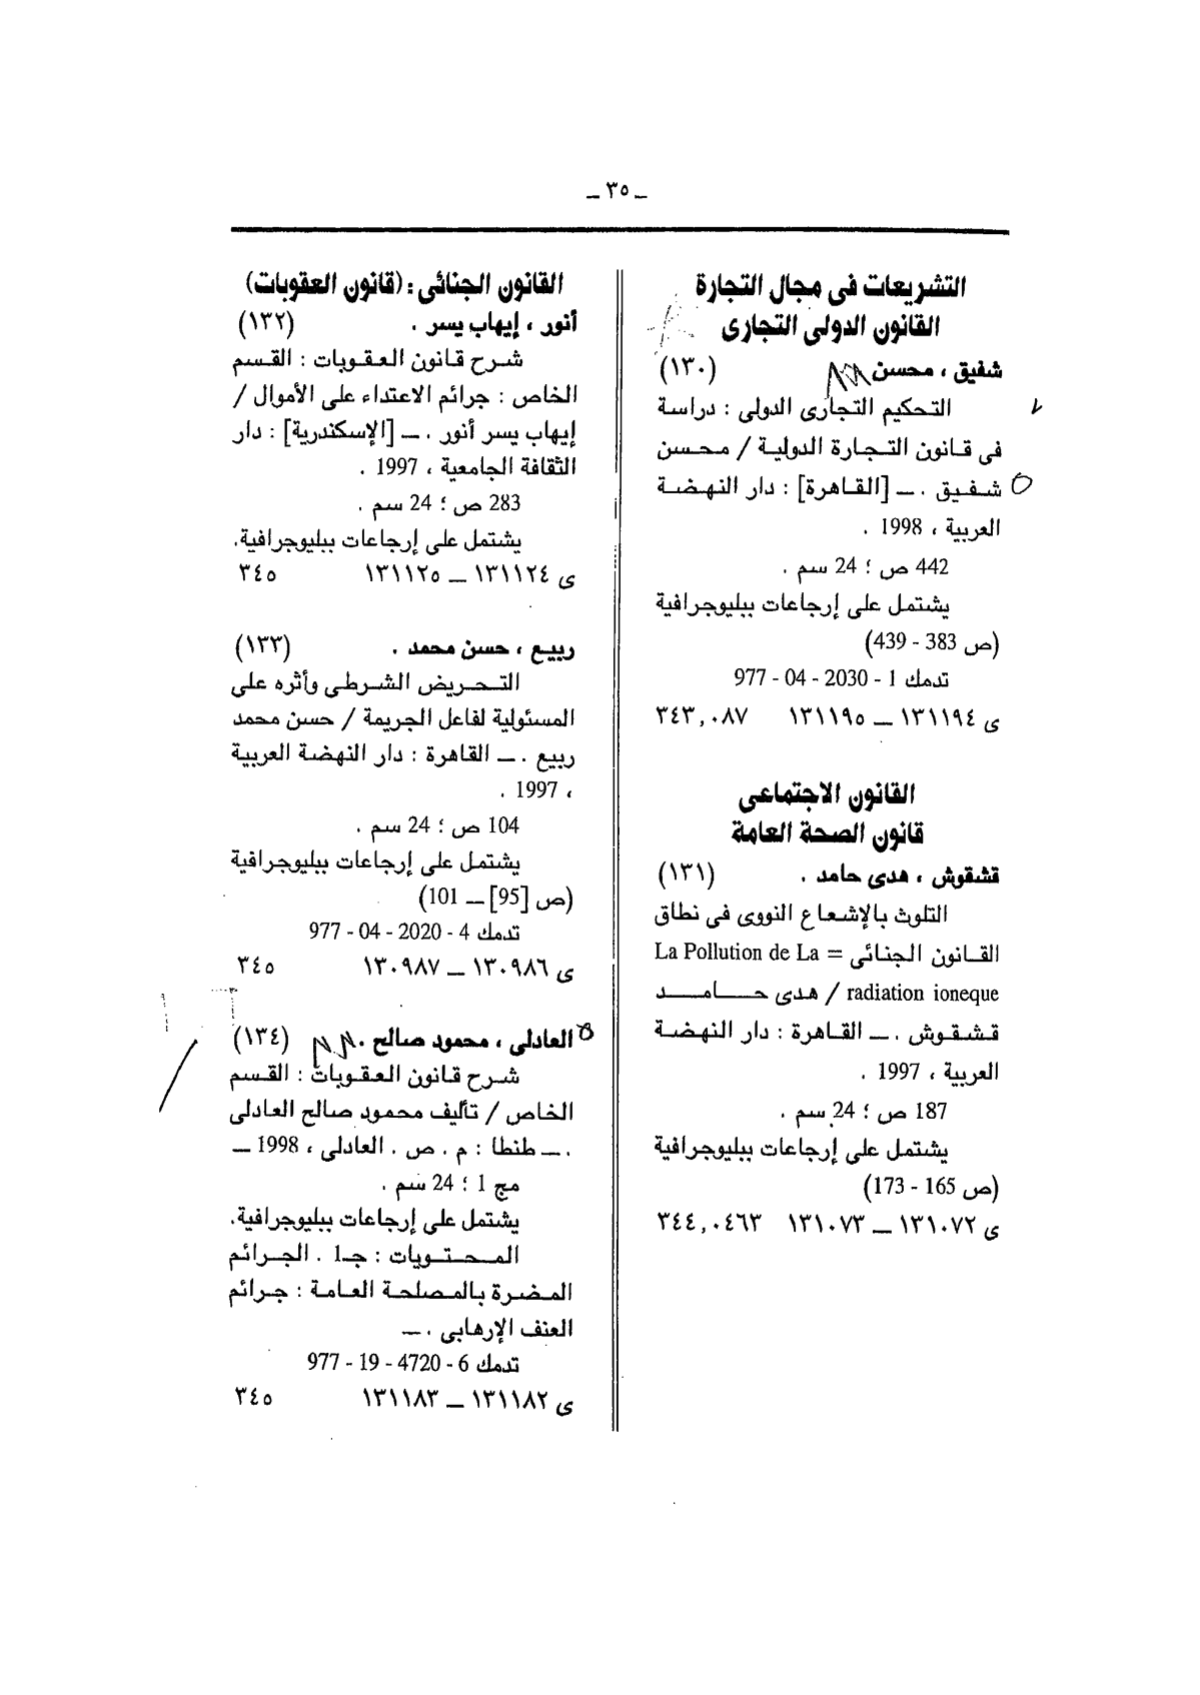 ـ ٣٥ ـ
التشريعات فى مجال التجارة
القانون الدولى التجارى
شفيق ، محسن (١٣٠)
التحكيم التجارى الدولى : دراسة
فى قانون التجارة الدولية / محسن
شفيق . ـ [القاهرة] : دار النهضة
العربية ، 1998 .
442 ص ؛ 24 سم .
يشتمل على إرجاعات ببليوجرافية
(ص 383 - 439)
تدمك 1 - 2030 - 04 - 977
ى ١٣١١٩٤ ـ ١٣١١٩٥ ٣٤٣,٠٨٧
القانون الاجتماعى
قانون الصحة العامة
قشقوش ، هدى حامد . (١٣١)
التلوث بالإشعاع النووى فى نطاق
القانون الجنائى = La Pollution de La
radiation ioneque / هدى حامد
قشقوش . ـ القاهرة : دار النهضة
العربية ، 1997 .
187 ص ؛ 24 سم .
يشتمل على إرجاعات ببليوجرافية
(ص 165 - 173)
ى ١٣١٠٧٢ ـ ١٣١٠٧٣ ٣٤٤,٠٤٦٣
القانون الجنائى : (قانون العقوبات)
أنور ، إيهاب يسر . (١٣٢)
شرح قانون العقوبات : القسم
الخاص : جرائم الاعتداء على الأموال /
إيهاب يسر أنور . ـ [الإسكندرية] : دار
الثقافة الجامعية ، 1997 .
283 ص ؛ 24 سم .
يشتمل على إرجاعات ببليوجرافية.
ى ١٣١١٢٤ ـ ١٣١١٢٥ ٣٤٥
ربيع ، حسن محمد . (١٣٣)
التحريض الشرطى وأثره على
المسئولية لفاعل الجريمة / حسن محمد
ربيع . ـ القاهرة : دار النهضة العربية
، 1997 .
104 ص ؛ 24 سم .
يشتمل على إرجاعات ببليوجرافية
(ص [95] ـ 101)
تدمك 4 - 2020 - 04 - 977
ى ١٣٠٩٨٦ ـ ١٣٠٩٨٧ ٣٤٥
العادلى ، محمود صالح . (١٣٤)
شرح قانون العقوبات : القسم
الخاص / تأليف محمود صالح العادلى
. ـ طنطا : م . ص . العادلى ، 1998 ـ
مج 1 ؛ 24 سم .
يشتمل على إرجاعات ببليوجرافية.
المحتويات : جـ1 . الجرائم
المضرة بالمصلحة العامة : جرائم
العنف الإرهابى . ـ
تدمك 6 - 4720 - 19 - 977
ى ١٣١١٨٢ ـ ١٣١١٨٣ ٣٤٥